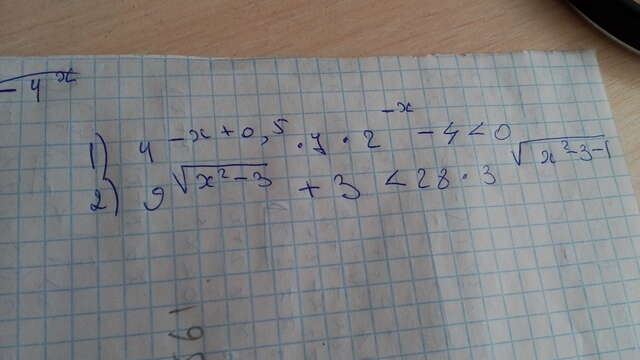 - 4^x
1) 4^{-x+0,5} · y · 2^{-x} - 4 < 0
2) 9^{√(x²-3)} + 3 < 28 · 3^{√(x²-3-1)}
561